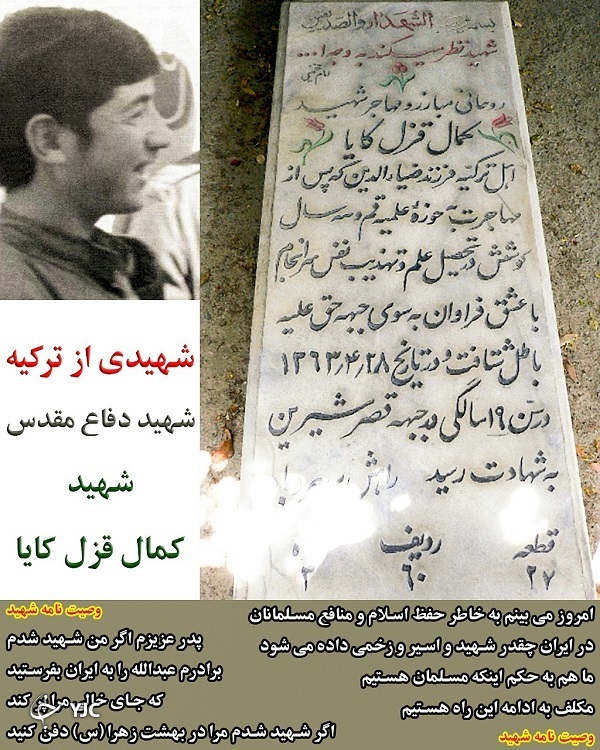 بسم رب الشهداء والصدیقین
شهید نظر میکند به وجه ا...
امام خمینی
روحانی مبارز و مهاجر شهید
کمال قزل کایا
اهل ترکیه فرزند ضیاءالدین که پس از
مهاجرت به حوزۀ علمیه قم و سه سال
کوشش در تحصیل علم و تهذیب نفس سرانجام
با عشق فراوان به سوی جبهه حق علیه
باطل شتافت و در تاریخ ۱۳۶۳٫۴٫۲۸
در سن ۱۹ سالگی در جبهه قصر شیرین
به شهادت رسید راهش
قطعه ردیف
۲۷ ۶۰
شهیدی از ترکیه
شهید دفاع مقدس
شهید
کمال قزل کایا
امروز می بینم به خاطر حفظ اسلام و منافع مسلمانان
در ایران چقدر شهید و اسیر و زخمی داده می شود
ما هم به حکم اینکه مسلمان هستیم
مکلف به ادامه این راه هستیم
وصیت نامه شهید
وصیت نامه شهید
پدر عزیزم اگر من شهید شدم
برادرم عبدالله را به ایران بفرستید
که جای خالی مرا پر کند
اگر شهید شدم مرا در بهشت زهرا (س) دفن کنید
YJC